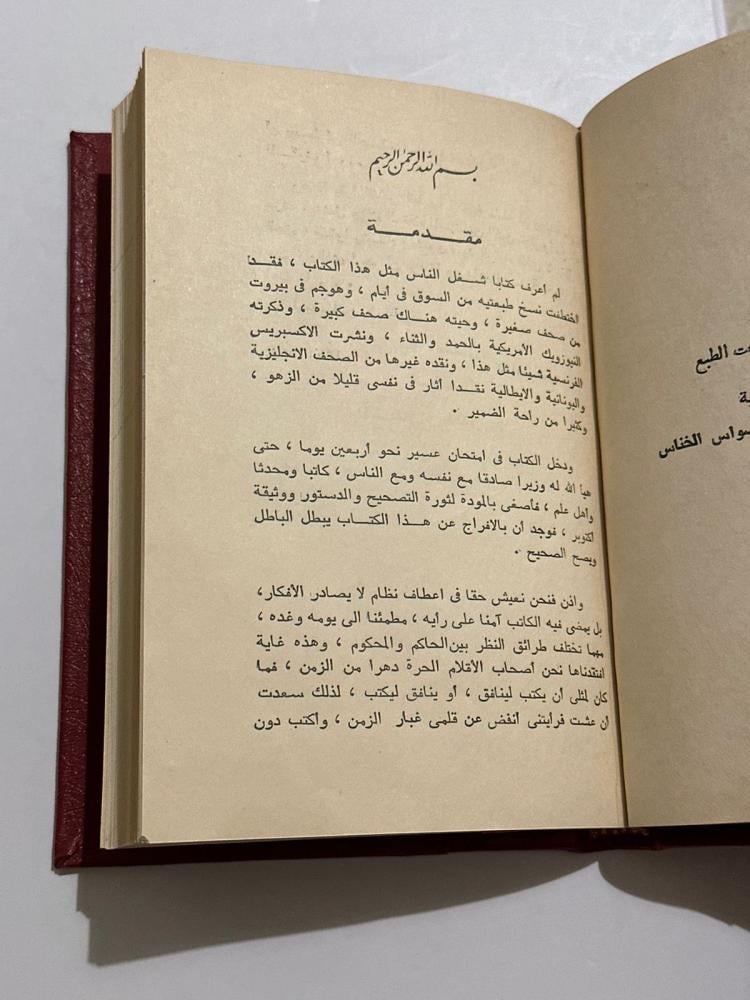 بسم الله الرحمن الرحيم
مقـــدمـــة
لم أعرف كتابا شـــغل الناس مثل هذا الكتاب ، فقـــد
اختطفت نسخ طبعتيه من السوق فى أيام ، وهوجم فى بيروت
من صحف صغيرة ، وحيته هنـــاك صحف كبيرة ، وذكرته
النيوزويك الأمريكية بالحمد والثناء ، ونشرت الاكسبريس
الفرنسية شيئا مثل هذا ، ونقده غيرها من الصحف الانجليزية
واليونانية والايطالية نقـــدا أثار فى نفسى قليلا من الزهو ،
وكثيرا من راحة الضمير .
ودخل الكتاب فى امتحان عسير نحو أربعين يوما ، حتى
هيأ الله له وزيرا صادقا مع نفسه ومع الناس ، كاتبا ومحدثا
وأهل علم ، فأصغى بالمودة لثورة التصحيح والدستور ووثيقة
أكتوبر ، فوجد أن بالافراج عن هـــذا الكتـــاب يبطل الباطل
ويصح الصحيح .
واذن فنحن نعيش حقا فى اعطاف نظام لا يصادر الأفكار،
بل يمضى فيه الكاتب آمنا على رأيه ، مطمئنا الى يومه وغده ،
مهما تختلف طرائق النظر بين الحاكم والمحكوم ، وهذه غاية
افتقدناها نحن أصحاب الأقلام الحرة دهرا من الزمن ، فما
كان لمثلى أن يكتب لينافق ، أو ينافق ليكتب ، لذلك سعدت
أن عشت فرأيتنى أنفض عن قلمى غبار الزمن ، وأكتب دون
الطبع
سواس الخناس